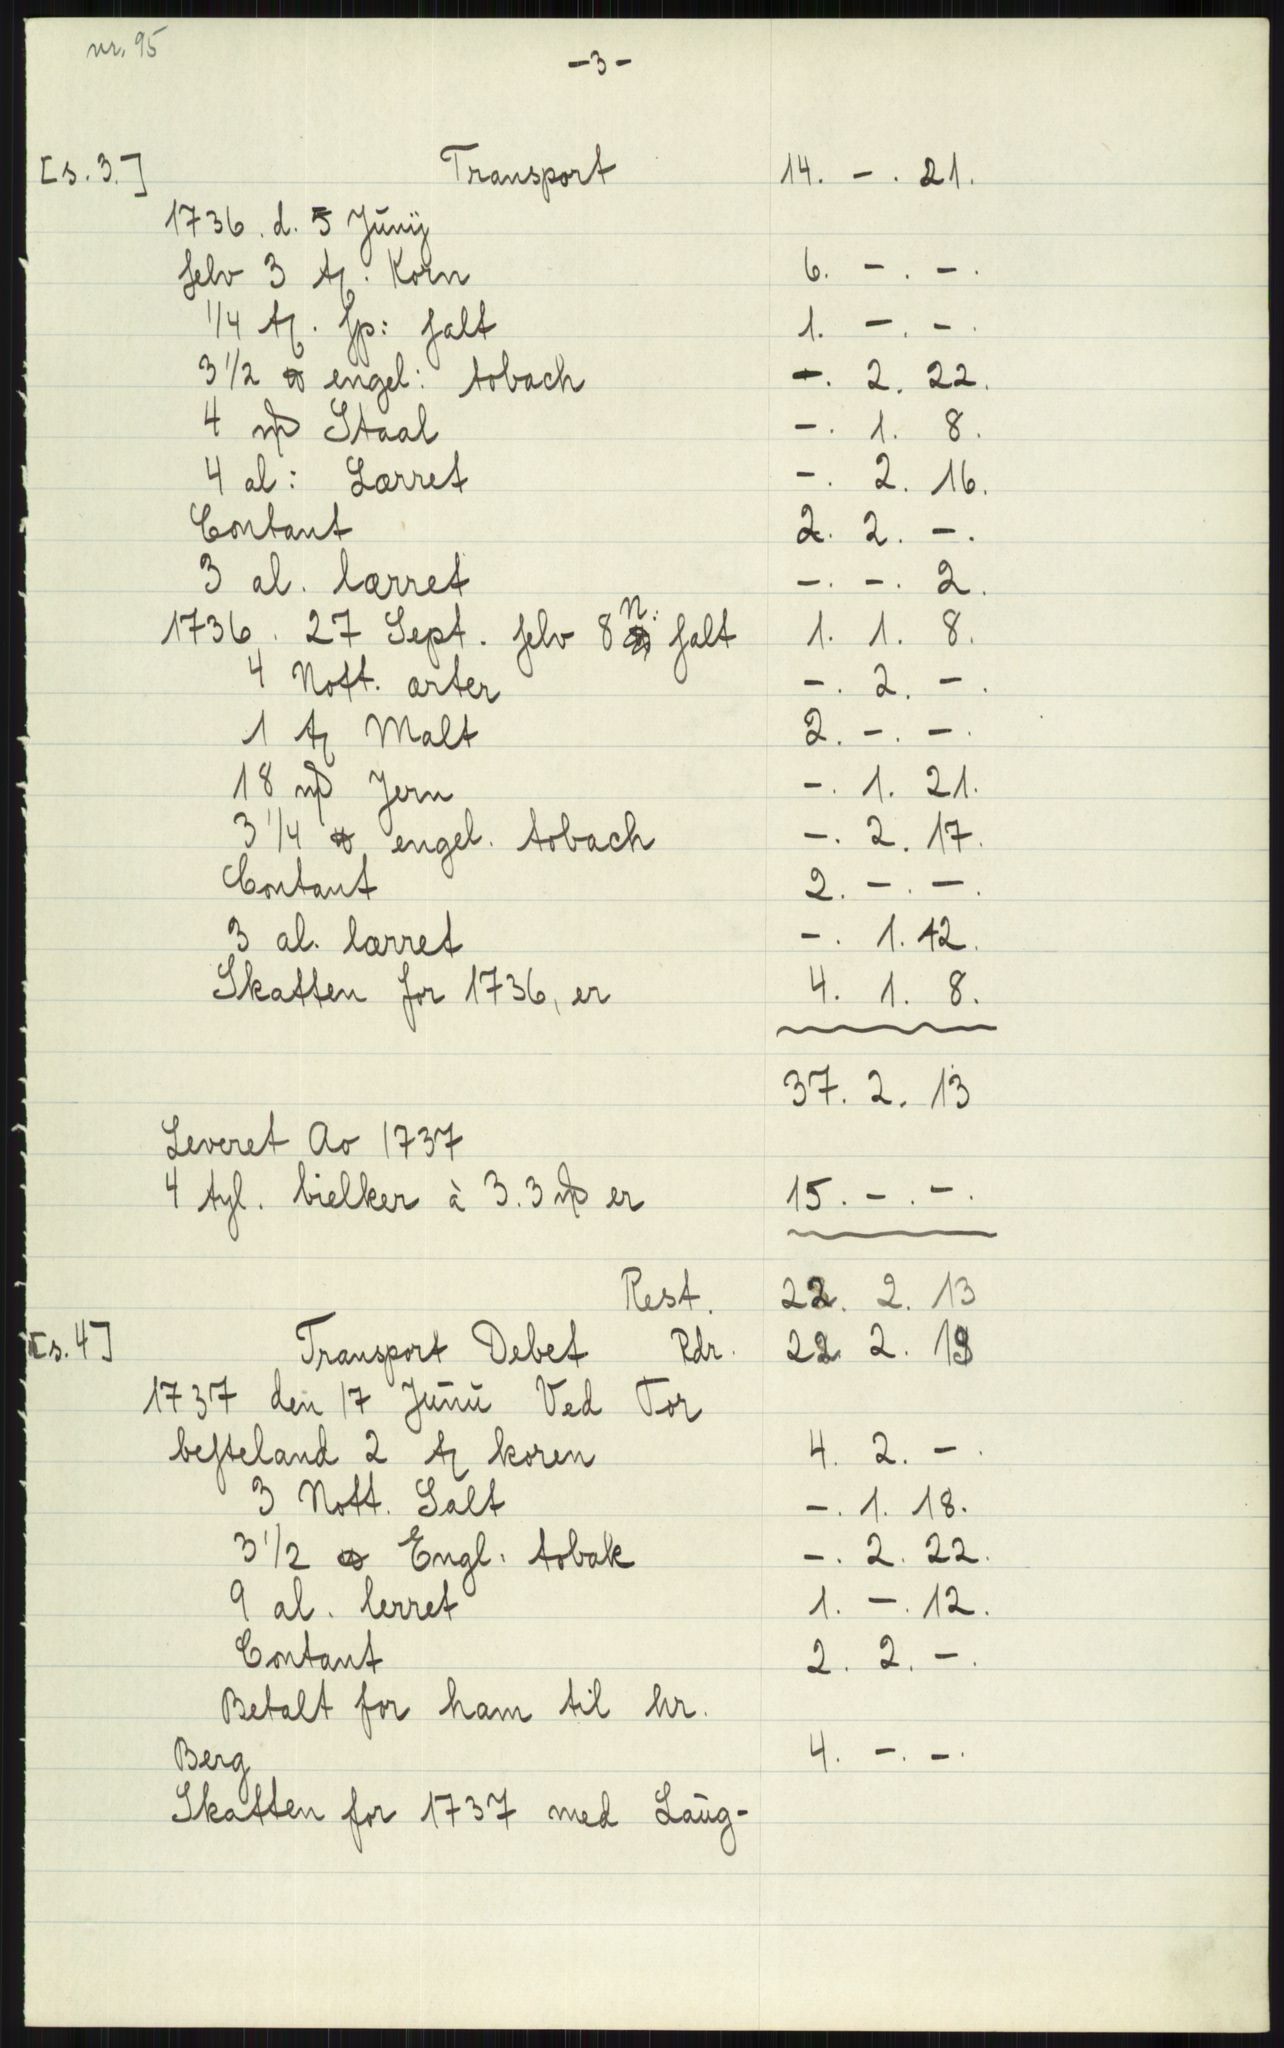 nr. 95
-3-
[s. 3.] Transport 14. -. 21.
1736. d. 5 Junÿ
selv 3 tz. Korn 6. -. -.
1/4 tz. sp: salt 1. -. -.
3 1/2 ℔ engel: tobach -. 2. 22.
4 m℔ Staal -. 1. 8.
4 al: Lærret -. 2. 16.
Contant 2. 2. -.
3 al. lærret -. -. 2.
1736. 27 Sept. selv 8 N: salt 1. 1. 8.
4 Nott. ærter -. 2. -.
1 tz Malt 2. -. -.
18 m℔ Jern -. 1. 21.
3 1/4 ℔ engel. tobach -. 2. 17.
Contant 2. -. -.
3 al. lærret -. 1. 12.
Skatten for 1736, er 4. 1. 8.
37. 2. 13
Leveret Ao 1737
4 tyl. bielker à 3.3 m℔ er 15. -. -.
Rest. 22. 2. 13
[s. 4] Transport Debet Rdr. 22 2. 13
1737 den 17 Junii Ved Tor
besteland 2 tz koren 4. 2. -.
3 Nott. Salt -. 1. 18.
3 1/2 ℔ Engl: tobak -. 2. 22.
9 al. lerret 1. -. 12.
Contant 2. 2. -.
Betalt for ham til hr.
Berg 4. -. -.
Skatten for 1737 med Laug-